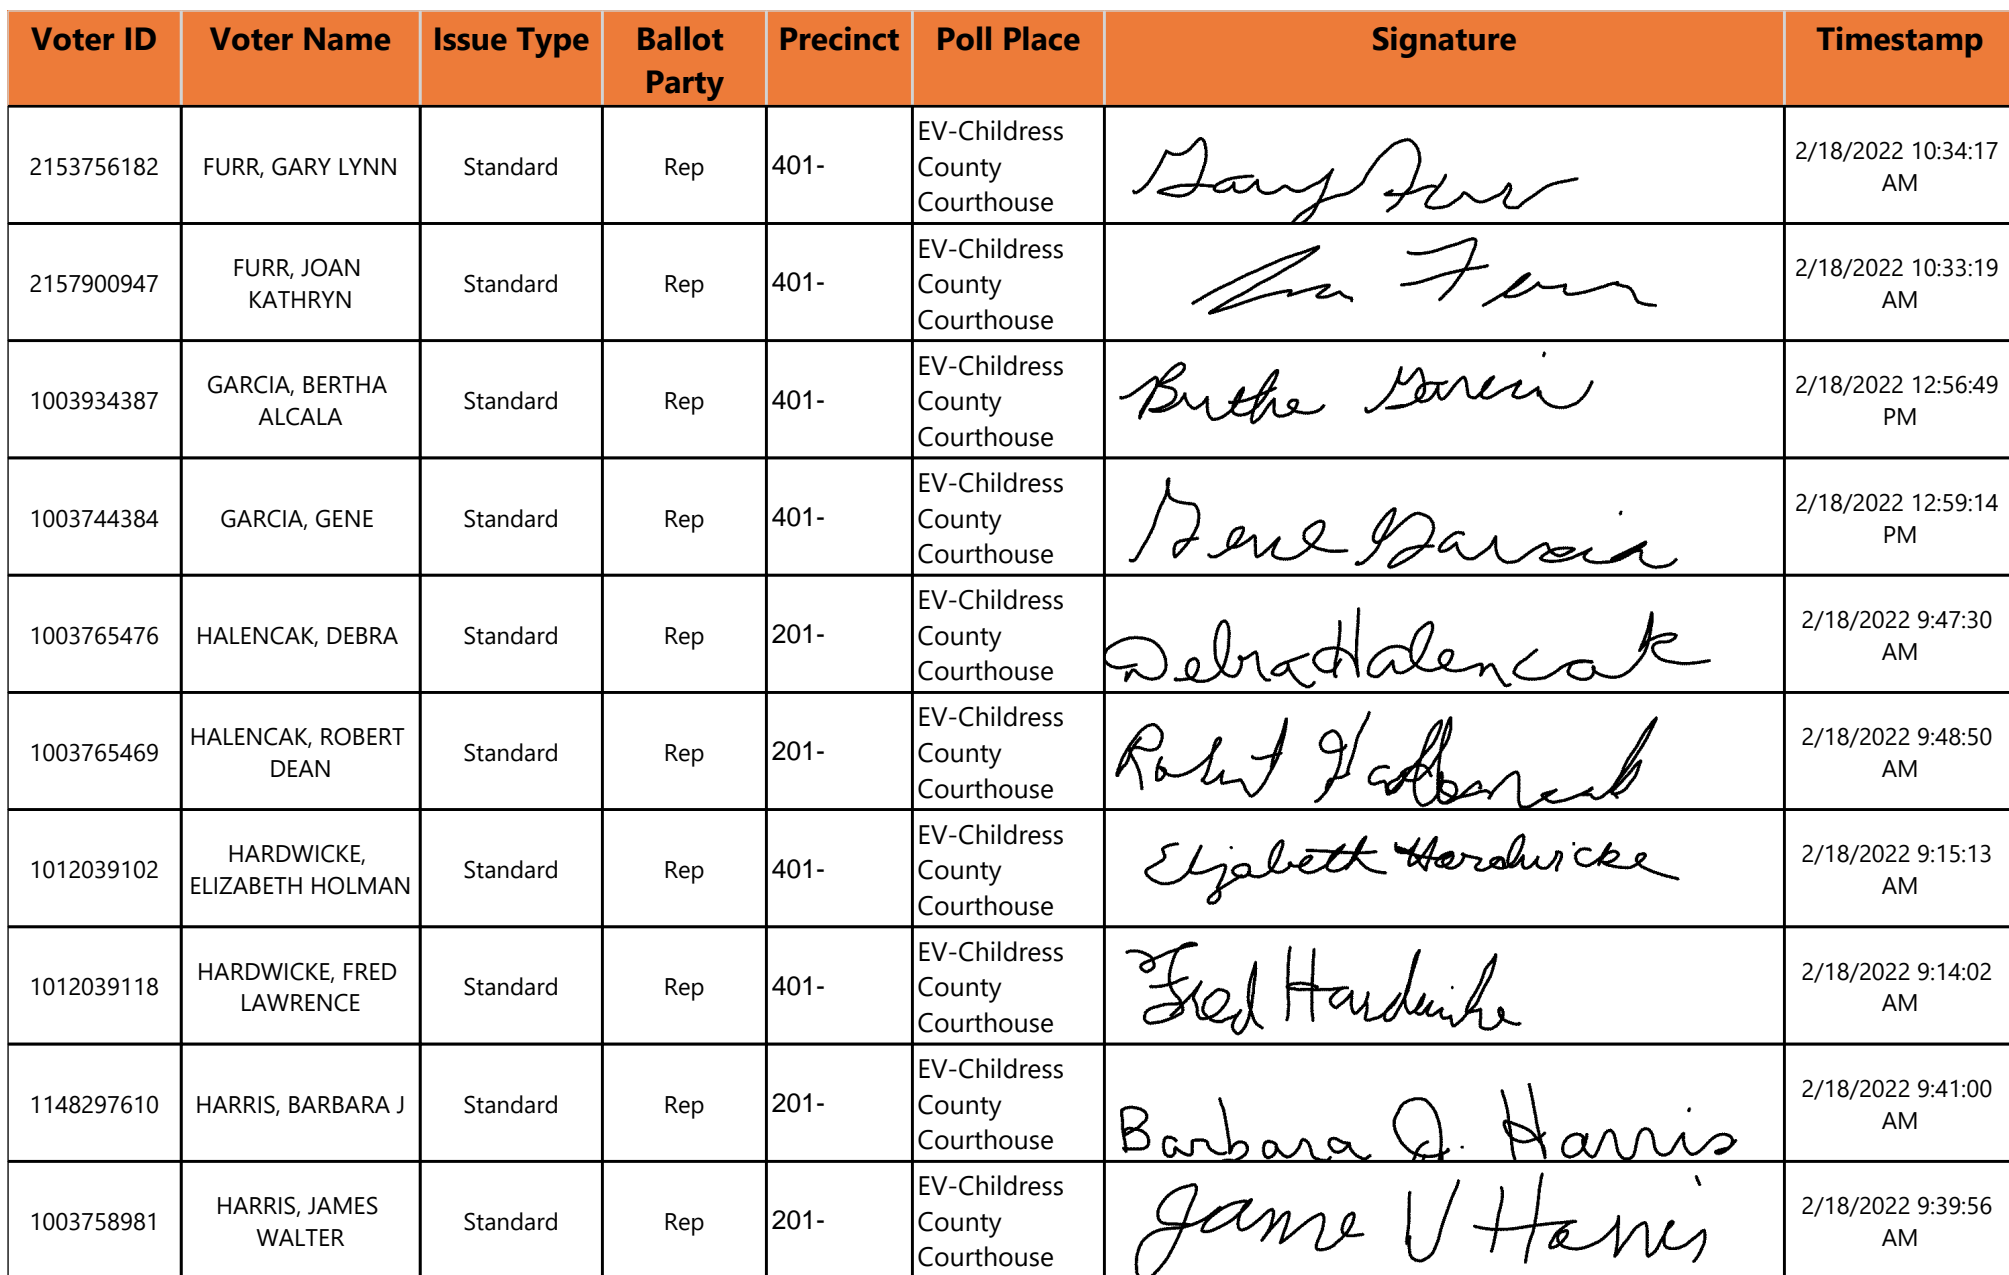 Voter ID Voter Name Issue Type Ballot Party Precinct Poll Place Signature Timestamp
2153756182 FURR, GARY LYNN Standard Rep 401- EV-Childress County Courthouse Gary Furr 2/18/2022 10:34:17 AM
2157900947 FURR, JOAN KATHRYN Standard Rep 401- EV-Childress County Courthouse 2/18/2022 10:33:19 AM
1003934387 GARCIA, BERTHA ALCALA Standard Rep 401- EV-Childress County Courthouse Bertha Garcia 2/18/2022 12:56:49 PM
1003744384 GARCIA, GENE Standard Rep 401- EV-Childress County Courthouse Gene Garcia 2/18/2022 12:59:14 PM
1003765476 HALENCAK, DEBRA Standard Rep 201- EV-Childress County Courthouse Debra Halencak 2/18/2022 9:47:30 AM
1003765469 HALENCAK, ROBERT DEAN Standard Rep 201- EV-Childress County Courthouse Robert Halencak 2/18/2022 9:48:50 AM
1012039102 HARDWICKE, ELIZABETH HOLMAN Standard Rep 401- EV-Childress County Courthouse Elizabeth Hardwicke 2/18/2022 9:15:13 AM
1012039118 HARDWICKE, FRED LAWRENCE Standard Rep 401- EV-Childress County Courthouse Fred Hardwicke 2/18/2022 9:14:02 AM
1148297610 HARRIS, BARBARA J Standard Rep 201- EV-Childress County Courthouse Barbara J. Harris 2/18/2022 9:41:00 AM
1003758981 HARRIS, JAMES WALTER Standard Rep 201- EV-Childress County Courthouse Harris 2/18/2022 9:39:56 AM